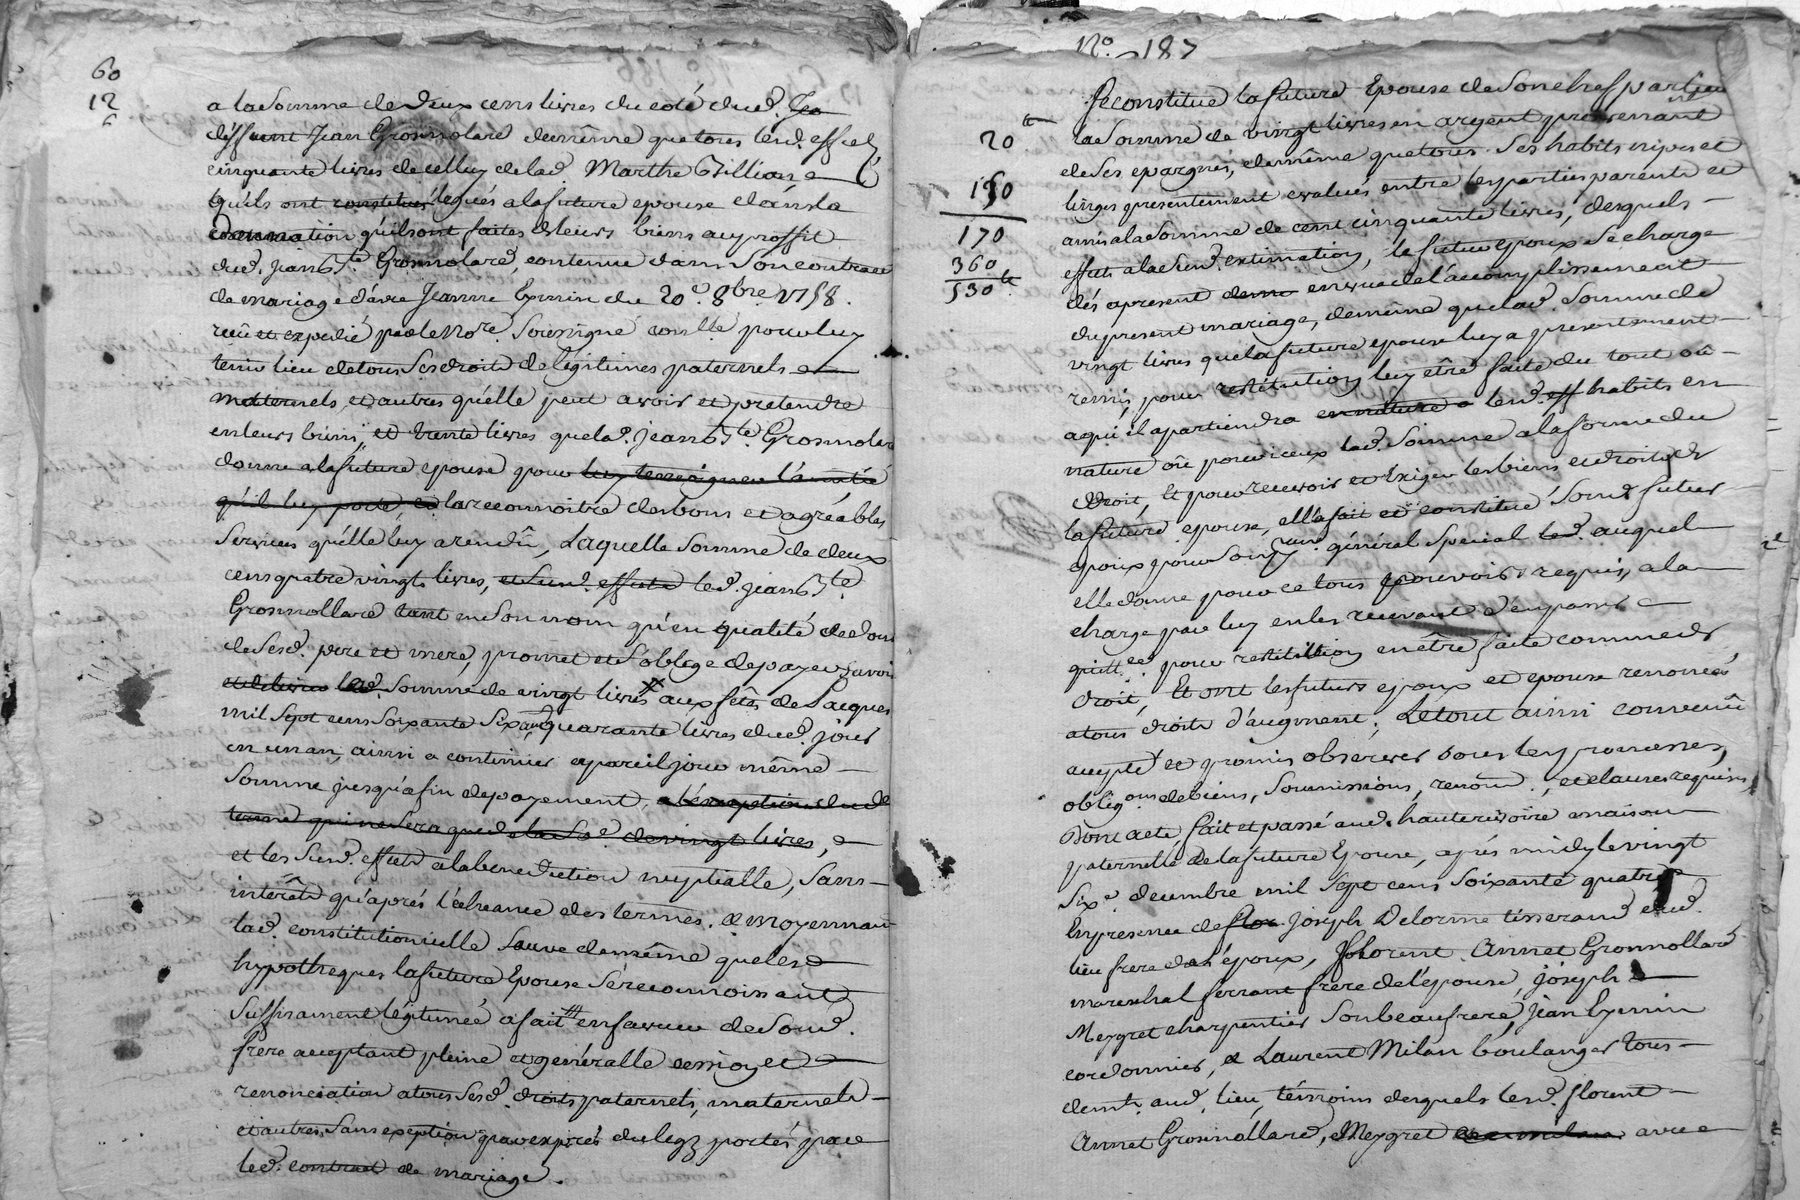 60
12
6
a la somme de deux cens livres du coté dud.
deffunt Jean Gronnolard demême que tous lesd. effets
cinquante livres de celluy de lad. Marthe Billion
qu'ils ont constitués léguès a la future epouse dans la
donnation qu'ils ont faites de leurs biens au proffit
dud. jean Bte. Gronnolard, contenue dans son contract
de mariage d'avec Jeanne Eymin du 20e. 8bre. 1758.
reçu et expedié par le Nore. soussigné conlle. pour luy
tenir lieu de tous ses droits de légitimes paternels
maternels et autres qu'elle peut avoir et pretendre
en leurs biens, et trente livres que led. jean Bte. Gronnolard
donne a la future epouse pour luy temoigner l'amitié
qu'il luy porte et la reconnoitre des bons et agréables
services qu'elle luy a rendû, Laquelle somme de deux
cens quatre vingt livres, et susd. effets led. jean Bte.
Gronnollard tant en son nom qu'en qualité de don.
de sesd. pere et mere, promet et s'oblige de payer savoir
et delivrer lad. somme de vingt livres aux fêtes de Pacques
mil sept cens soixante six, quarante livres dud. jour
en un an, ainsi a continuer a pareil jour même
somme jusqu'a fin de payement, a l'éxception dud.
terme qui ne sera que de la So.e de vingt livres,
et les susd. effets a la benediction nuptialle, sans
interêts qu'aprés l'écheance des termes. & moyennant
lad. constitution icelle sauve demême que les
hypotheques la future Epouse se reconnoissant
suffisament légitimée a fait en faveur de sond.
frere acceptant pleine et generalle cession et
renonciation a tous sesd. droits paternels, maternels
et autres sans exeption que par exprés du legz portés par
led. contract de mariage.
No. 187
20 tt
150
170
360
530 tt
Se constitue la future Epouse de son chef particu
la somme de vingt livres en argent provenant
de ses epargnes, demême que tous ses habits nipes et
linges presentement evalués entre les parties parents et
amis a la somme de cent cinquante livres, desquels
effets a lad. sud. extimation, le futur epoux se charge
dés apresent en vue de l'accomplissement
du present mariage, demême que lad. somme de
vingt livres que la future epouse luy a presentement
remis, pour restitution luy être faite du tout où
a qui il apartiendra en nature a lesd. eff habits en
nature où pour iceux lad. somme a la forme du
droit, Et pour recevoir et Exiger les biens et droits de
la future epouse, elle fait et constitue sond. futur
epoux pour son procur. général special led. auquel
elle donne pour ce tous pouvoirs requis, a la
charge par luy en les recevant d'en passer
quittce. pour restitution en être faite comme de
droit, Et ont les futurs epoux et epouse renoncés
a tous droits d'augment; Le tout ainsi convenû
accepté et promis observer sous les promesses,
obligons. de biens, soumissions, renon., et clauses requises,
Dont acte fait et passé aud. hauterivoire maison
paternelle de la future Epouse, aprés midy le vingt
sixe. decembre mil sept cens soixante quatre
En presence de flor joseph Delorme tisserand dud.
lieu frere de l'époux, florent Annet Gronnollard
marechal ferrant frere de l'épouse, joseph
Meygret charpentier son beaufrere, jean Eymin
cordonnier, & Laurent Milan boulanger tous
demts. aud. lieu, témoins desquels lesd. florent
Annet Gronnollard, Meygret avec